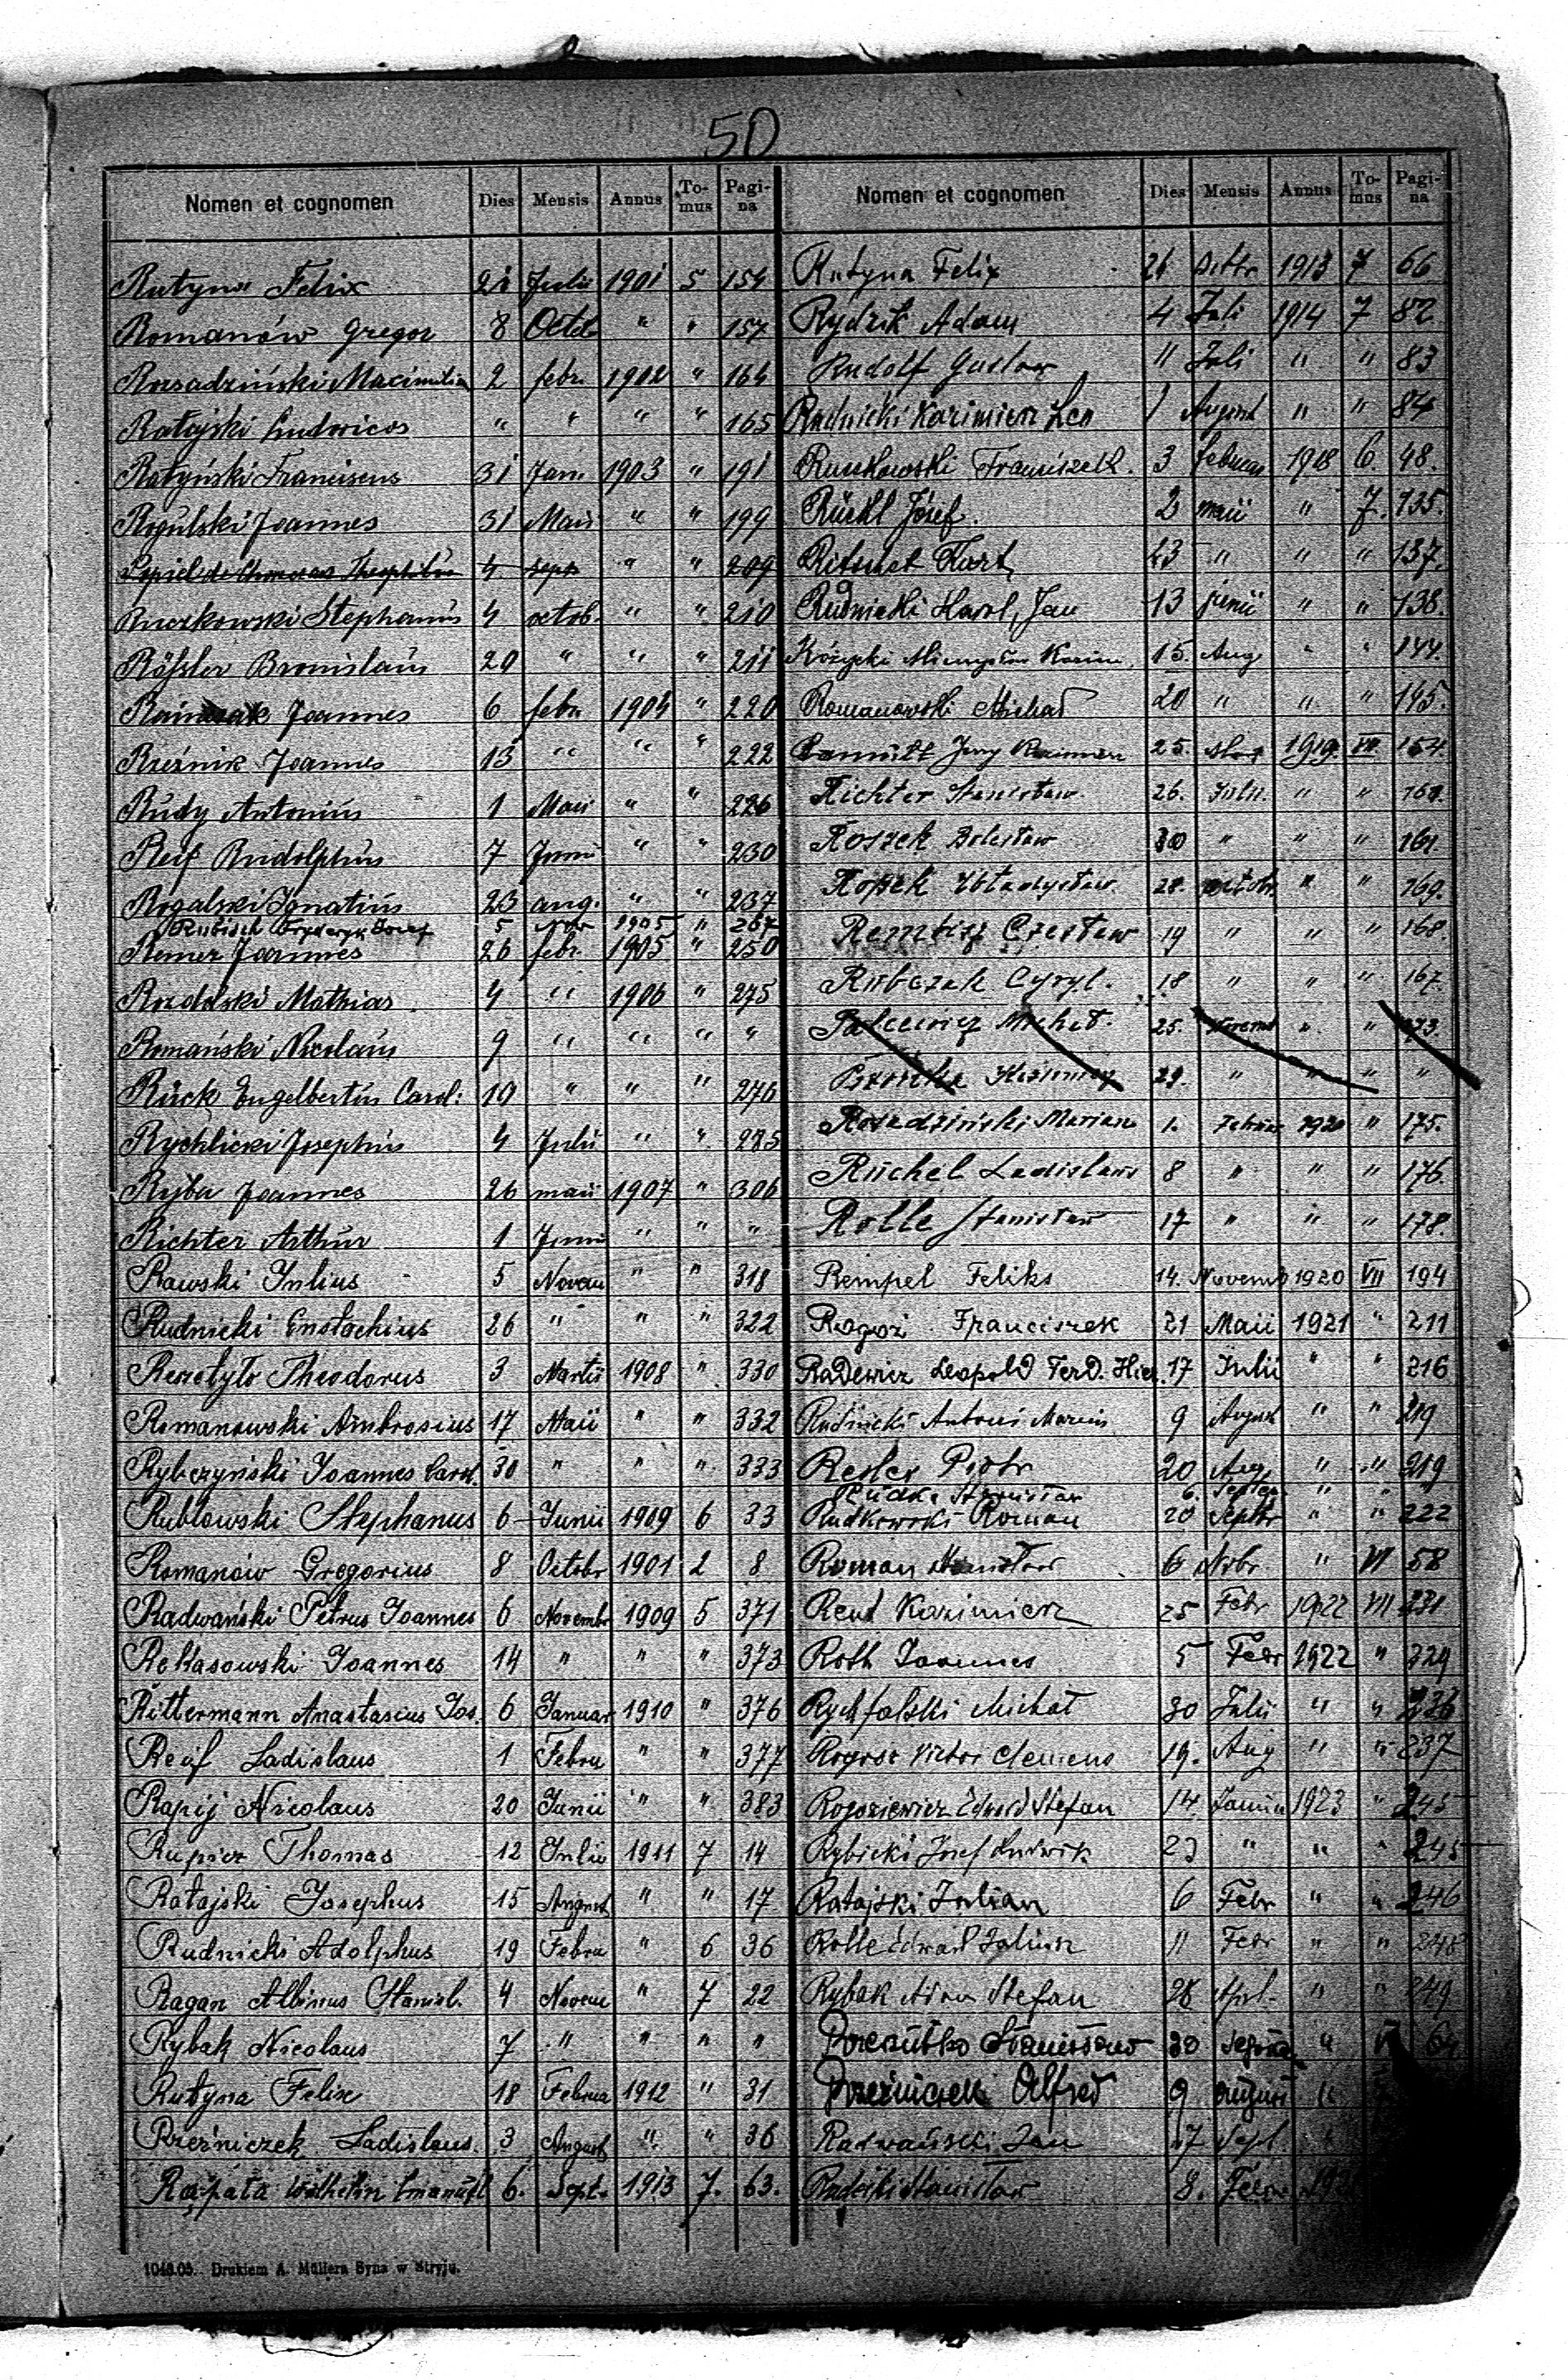 50
Nomen et cognomen Dies Mensis Annus Tomus Pagina
Rutyna Felix 21 Julii 1901 5 154
Romanów Gregor 8 Octob " " 157
Rozsadziński Macimilian 2 febr. 1902 " 164
Ratajski Ludovicos " " " " 165
Ratyński Franciscus 31 Jan. 1903 " 191
Rogulski Joannes 31 Maii " " 199
4 sept " " 209
Ruczkowski Stephanus 4 octob. " " 210
Rößler Bronislaus 29 " " " 211
Joannes 6 febr. 1904 " 220
Rzeźnik Joannes 13 " " " 222
Rudy Antonius 1 Maii " " 226
Reif Rudolphus 7 Junii " " 230
Rogalski Ignatius 23 aug. " " 237
Rubisch Fryderyk Josef 5 Nov 1905 " 267
Remer Joannes 26 febr. 1905 " 250
Rozdolski Mathias 4 " 1906 " 275
Romański Nicolaus 9 " " " "
Rück Engelbertus Carol: 19 " " " 276
Rychlicki Josephus 4 Julii " " 285
Ryba Joannes 26 maii 1907 " 306
Richter Arthur 1 Junii " " "
Rawski Julius 5 Novem " " 318
Rudnicki Eustachius 26 " " " 322
Theodorus 3 Martii 1908 " 330
Romanowski Ambrosius 17 Maii " " 332
Rybczyński Joannes Carol. 30 " " " 333
Rublowski Stephanus 6 Junii 1909 6 33
Romanów Gregorius 8 Octobr 1901 2 8
Radwański Petrus Joannes 6 Novembr 1909 5 371
Rekasowski Joannes 14 " " " 373
Rittermann Anastasius Jos. 6 Januar 1910 " 376
Reif Ladislaus 1 Febru " " 377
Rapij Nicolaus 20 Junii " " 383
Rupicz Thomas 12 Julii 1911 7 14
Ratajski Josephus 15 August " " 17
Rudnicki Adolphus 19 Febru " 6 36
Ragan Albinus Stanisl. 4 Novem " 7 22
Rybak Nicolaus 7 " " " "
Rutyna Felix 18 Februa 1912 " 31
Rzeźniczek Ladislaus. 3 August " " 36
Rapata Wilhelm Emanuel 6. Sept. 1913 7. 63.
1048.05. Drukiem A. Müllera Syna w Stryju.
Nomen et cognomen Dies Mensis Annus Tomus Pagina
Rutyna Felix 26 1913 7 66
Rydzik Adam 4 Juli 1914 7 82
Rudolf Gustaw 11 Juli " " 83
Rudnicki Kazimierz Leo 1 August " " 84
Ruszkowski Franciszek. 3 februar 1918 6. 48.
Rückl Józef. 2 maii " 7. 135.
23 " " " 137.
Rudnicki Karol, Jan 13 junii " " 138.
Różycki Mieczysław Kazim. 15. Aug. " " 144.
Romanowski Michał 20 " " " 145.
Jerzy Kazimierz 25. 1919. VII. 154.
Richter Stanisław 26. Julii. " " 160.
Roszek Bolesław 30 " " " 161.
Władysław 28. octobr " " 169.
Rembisz Czesław 19 " " " 168.
Rubczak Cyryl. 18 " " " 167.
Michał. 25. " " 173.
29. " " " "
Rozadziński Marian 1. Februar 1920 " 175.
Rüchel Ladislaus 8 " " " 176.
Rolle Stanisław 17 " " " 178.
Rempel Feliks 14. Novemb 1920 VII 194
Rogoż Franciszek 21 Maii 1921 " 211
Radewicz Leopold Ferd. Hier. 17 Julii " " 216
Rudnicki Antoni Marcin 9 August " " 219
Resler Piotr 20 Aug. " " 219
Rudka Stanisław 6. Septem " "
Rudkowski Roman 20 Septbr " " 222
Roman 6 Nobr " VI 58
Reut Kazimierz 25 Febr 1922 VII 231
Roth Joannes 5 Febr 1922 " 229
Rychfalski Michał 30 Julii " " 236
Rogosz Victor Clemens 19. Aug " " 237
Rogoziewicz Edward Stefan 14. Januar 1923 " 245
Rybicki Józef Ludwik 23 " " " 245
Ratajski Julian 6 Febr " " 246
Rolle Edward Juliusz 11 Febr " " 248
Rybak Adam Stefan 28 Apl. " " 249
Stanisław 30 " 64
Rzeźniczek Alfred 9 august "
Radwański Jan 17 Sept. "
Stanisław 8.